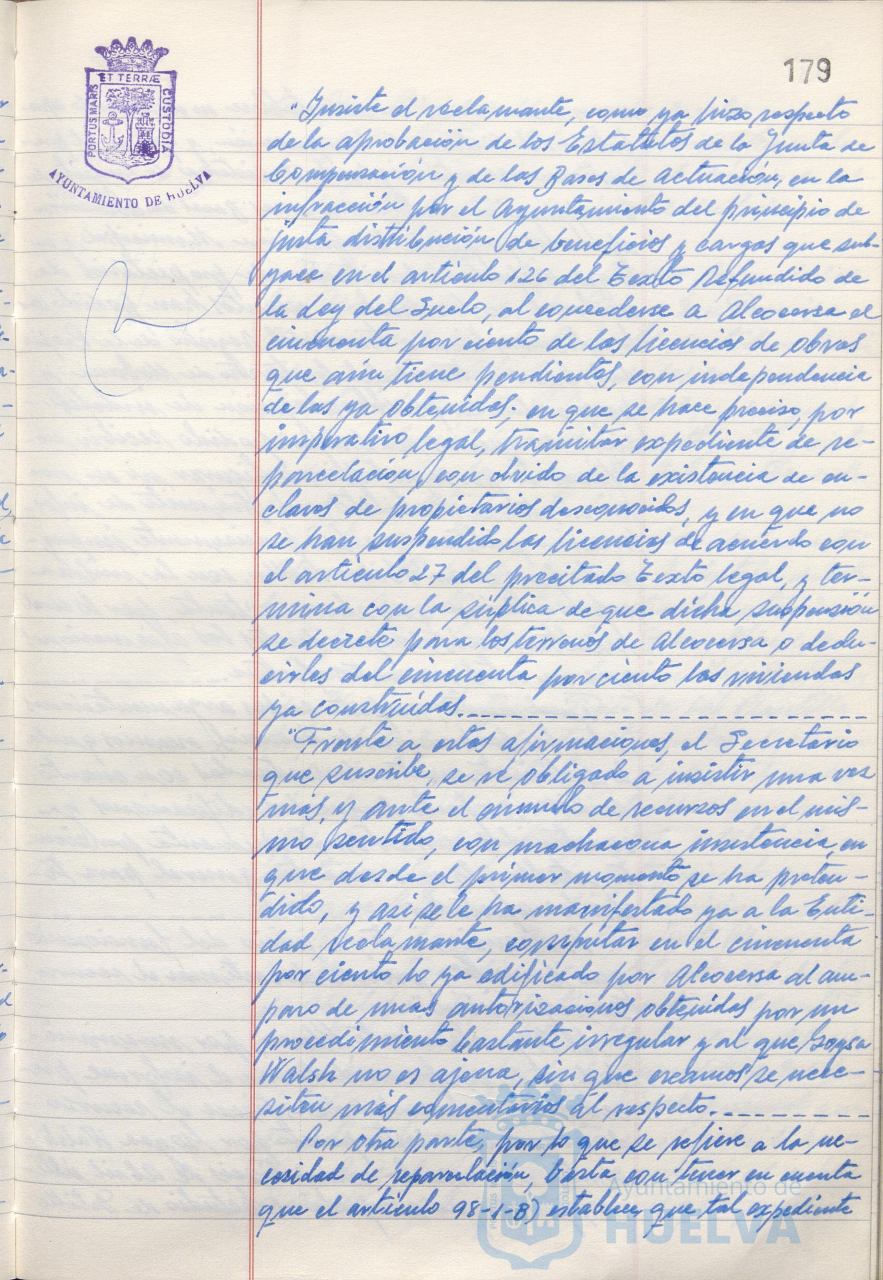 179
PORTUS MARIS ET TERRÆ CUSTODIA
AYUNTAMIENTO DE HUELVA
"Insiste el reclamante, como ya hizo respecto
de la aprobación de los Estatutos de la Junta de
Compensación y de las Bases de actuación, en la
infracción por el Ayuntamiento del principio de
justa distribución de beneficios y cargas que sub-
yace en el artículo 126 del Texto Refundido de
la Ley del Suelo, al concederse a Alcocersa el
cincuenta por ciento de las licencias de obras
que aún tiene pendientes, con independencia
de las ya obtenidas; en que se hace preciso, por
imperativo legal, tramitar expediente de re-
parcelación, con olvido de la existencia de en-
claves de propietarios desconocidos, y en que no
se han suspendido las licencias de acuerdo con
el artículo 27 del precitado Texto legal, y ter-
mina con la súplica de que dicha suspensión
se decrete para los terrenos de Alcocersa o dedu-
cirles del cincuenta por ciento las viviendas
ya construidas.
"Frente a estas afirmaciones, el Secretario
que suscribe, se ve obligado a insistir una vez
más, y ante el cúmulo de recursos en el mis-
mo sentido, con machacona insistencia, en
que desde el primer momento se ha preten-
dido, y así se le ha manifestado ya a la Enti-
dad reclamante, computar en el cincuenta
por ciento lo ya edificado por Alcocersa al am-
paro de unas autorizaciones obtenidas por un
procedimiento bastante irregular y al que
Walsh no es ajena, sin que creamos se nece-
siten más comentarios al respecto.
Por otra parte, por lo que se refiere a la ne-
cesidad de reparcelación, basta con tener en cuenta
que el artículo 98-1-B) establece que tal expediente
Ayuntamiento de
HUELVA